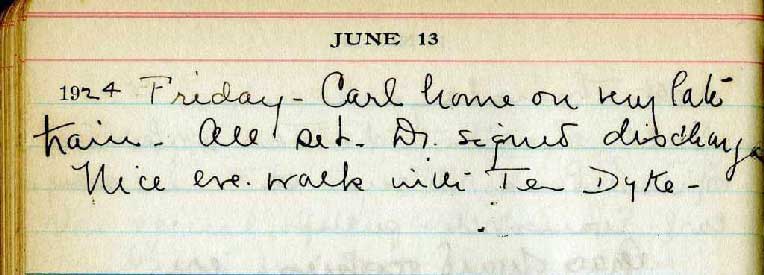 JUNE 13
1924 Friday - Carl home on very late
train. All set. Dr. signed discharge
Nice eve. walk with Ten Dyke -